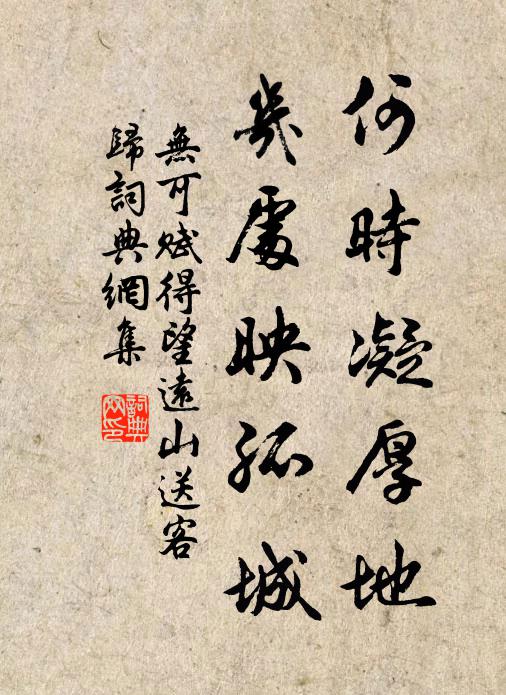 何時凝厚地
幾處映孤城
無可賦得望遠山送客
歸詞典網集
詞典
网印